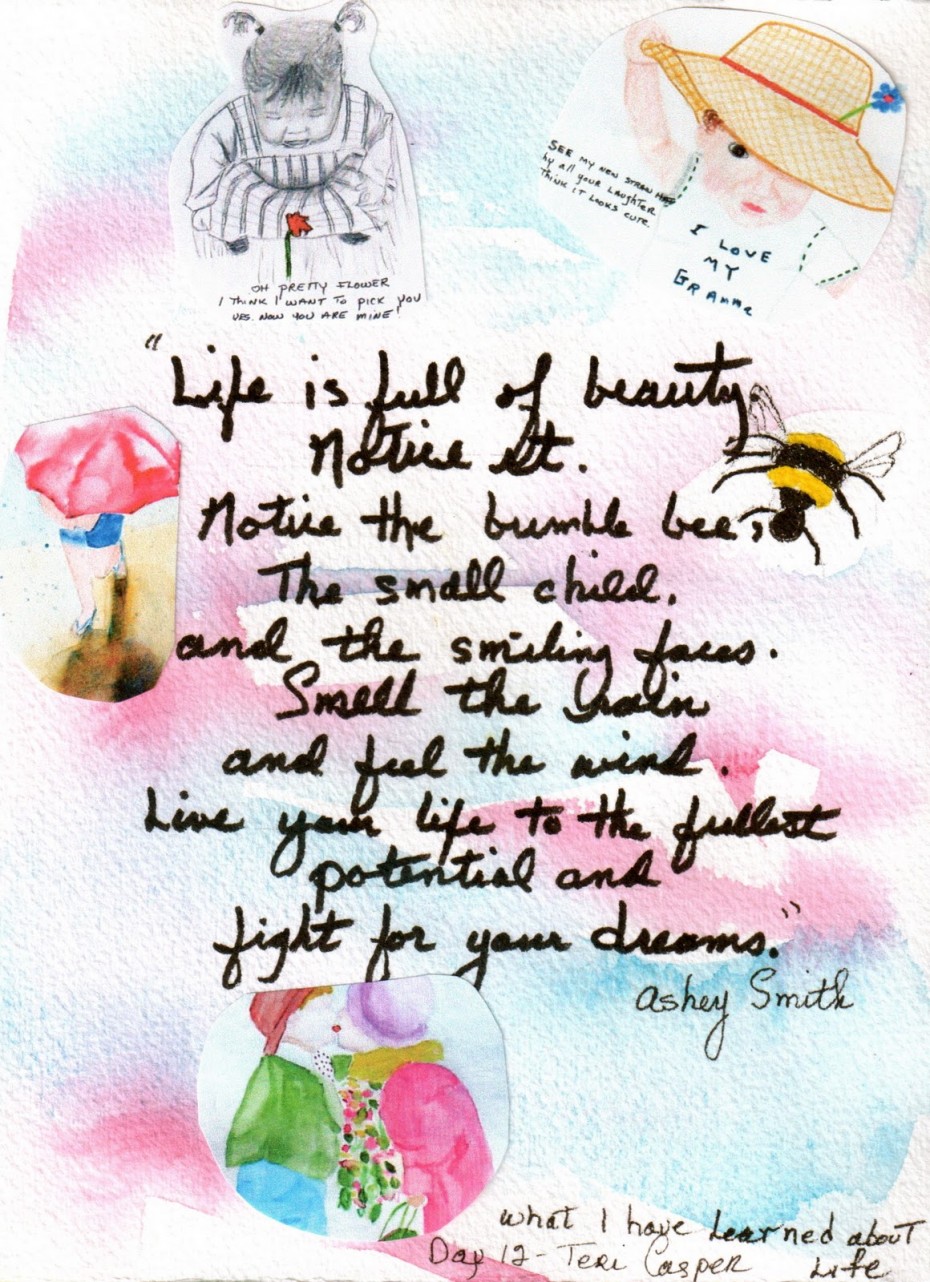 OH PRETTY FLOWER
I THINK I WANT TO PICK YOU
YES. NOW YOU ARE MINE!
SEE MY NEW STRAW HAT
by all your LAUGHTER
THINK IT LOOKS CUTE.
I LOVE
MY
GRAMMA
"Life is full of beauty.
Notice it.
Notice the bumble bee,
The small child,
and the smiling faces.
Smell the rain
and feel the wind.
Live your life to the fullest
potential and
fight for your dreams."
Ashey Smith
what I have Learned about
Life
Day 12 - Teri Casper